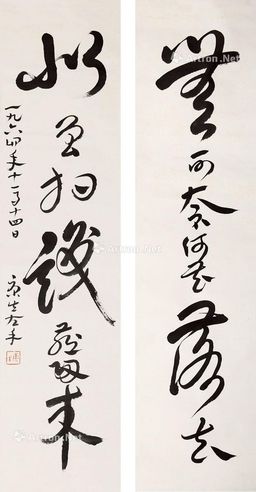 無可奈何花落去
似曾相識燕歸來
一九六四年十一月十四日
康生左手
Artron.Net